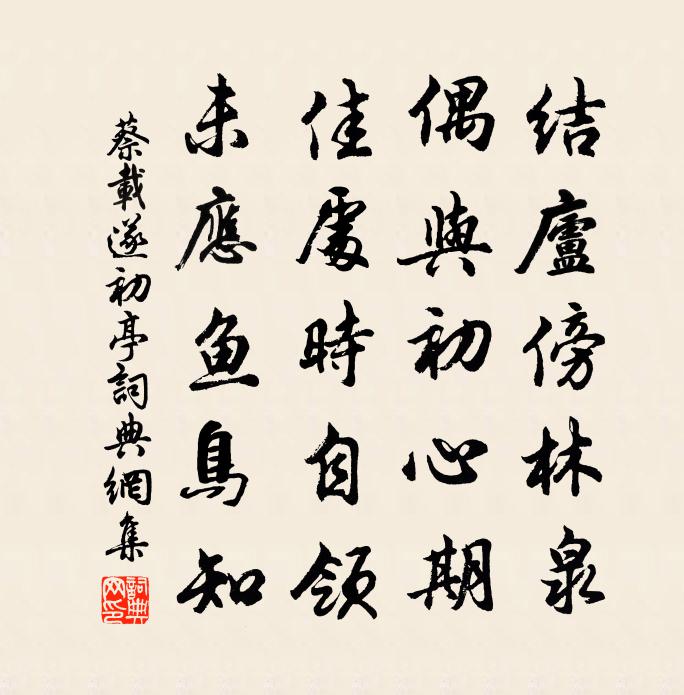 結廬傍林泉
偶與初心期
佳處時自領
未應魚鳥知
蔡載遂初亭詞典網集
詞典网印